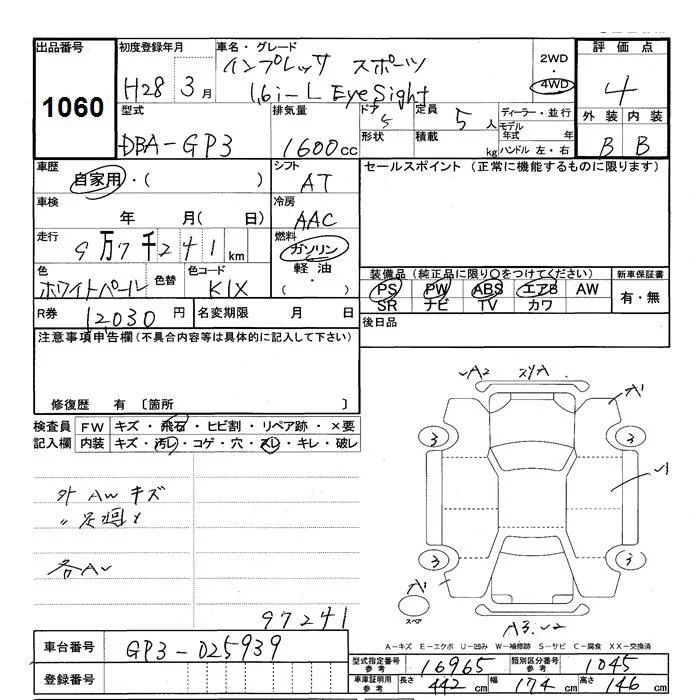 出品番号
1060
初度登録年月
H28 3月
車名・グレード
インプレッサ スポーツ
1.6i-L EyeSight
2WD
4WD
評価点
4
外装 内装
B B
型式
DBA-GP3
排気量
1600cc
ドア
5
形状
定員
5人
積載
kg
ディーラー・並行
モデル年式 年
ハンドル 左・右
車歴
自家用・( )
シフト
AT
セールスポイント (正常に機能するものに限ります)
車検
年 月( 日)
冷房
AAC
走行
9万7千241km
燃料
ガソリン
軽油
( ・ )
色
ホワイトパール
色替
色コード
K1X
装備品(純正品に限り○をつけてください)
PS PW ABS エアB AW
SR ナビ TV カワ
新車保証書
有・無
R券
12,030円
名変期限 月 日
後日品
注意事項申告欄(不具合内容等は具体的に記入して下さい)
修復歴 有 〔箇所 〕
検査員 FW キズ・飛石・ヒビ割・リペア跡・×要
記入欄 内装 キズ・汚レ・コゲ・穴・スレ・キレ・破レ
外 AW キズ
〃 足廻
97241
A2
スリA
3
3
3
3
スペア
A3
A-キズ E-エクボ U-凹み W-補修跡 S-サビ C-腐食 XX-交換済
車台番号
GP3-025939
登録番号
型式指定番号 参考
16965
類別区分番号 参考
1045
車庫証明用 参考
長さ 442cm
幅 174cm
高さ 146cm